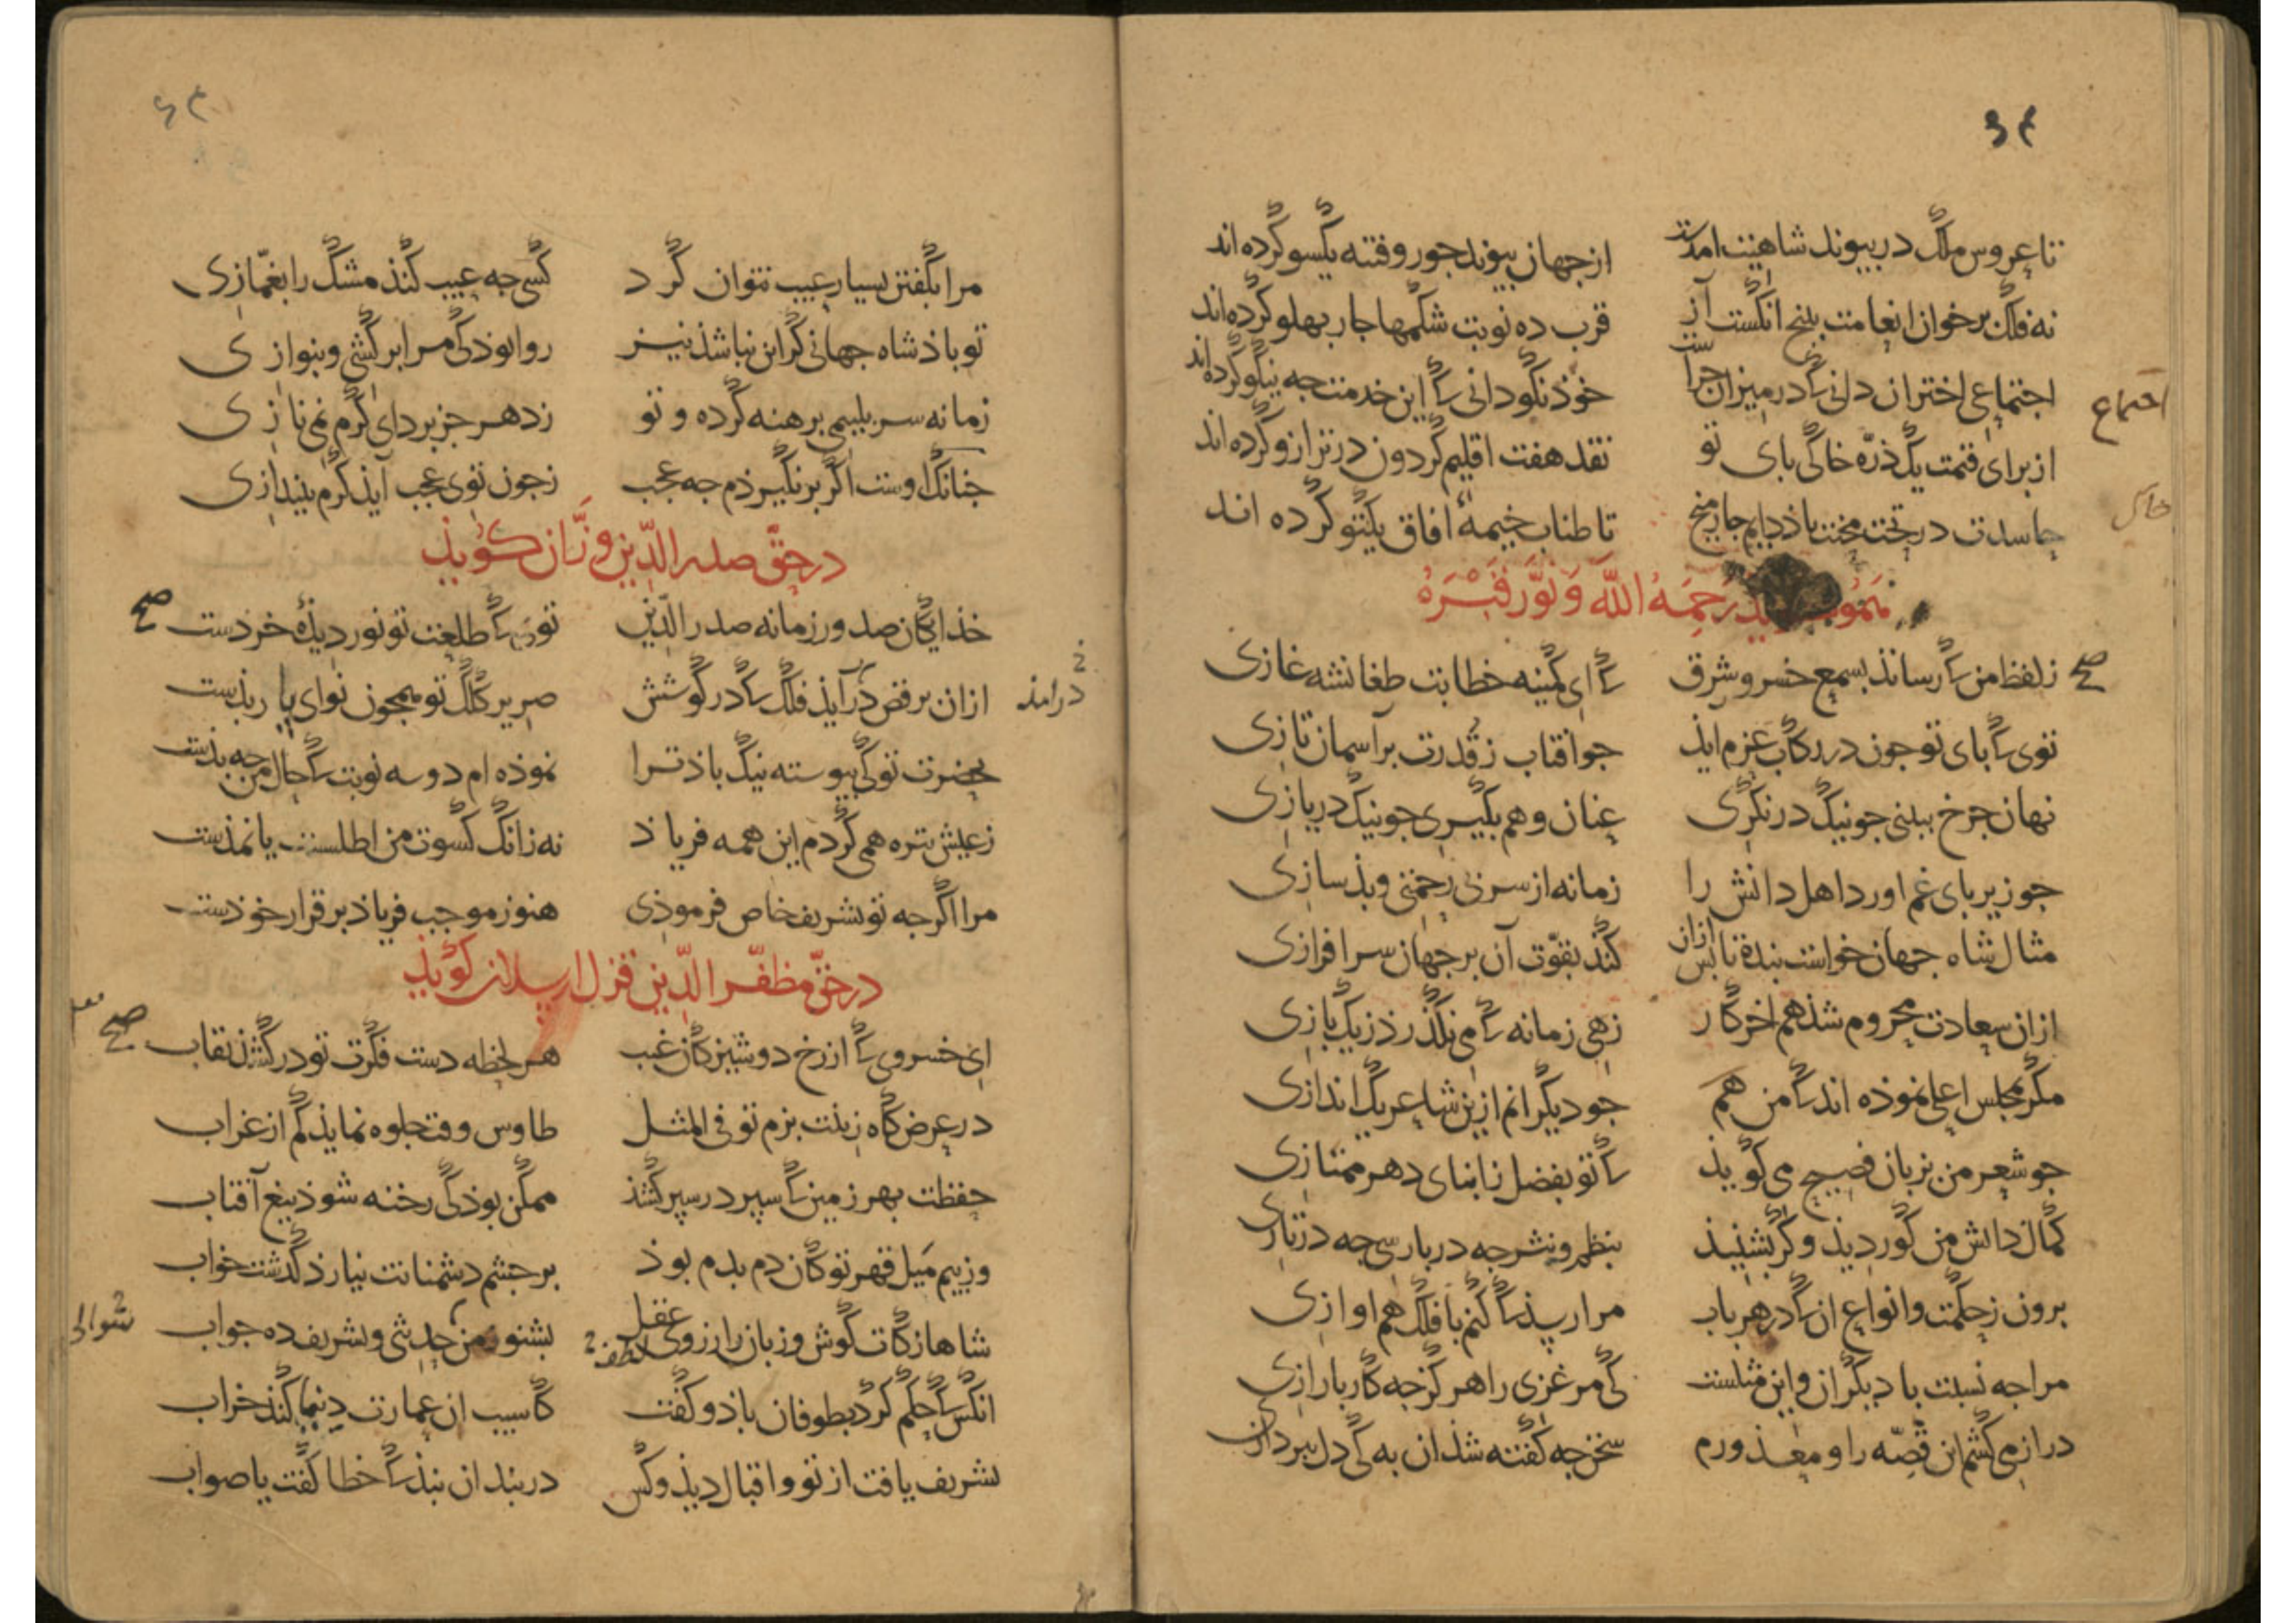 ۶۴
تا عروس ملک در بیوند شاهیت امدست از جهان بیوند جور و فتنه یکسو کرده اند
نه فلک بر خوان انعامت بنج انکست آز قرب ده نوبت شکمها جار بهلو کرده اند
اجتماعی اختران دانی که در میزان جراست خوذ نکو دانی که این خدمت جه نیکو کرده اند
اجتماع
از برای قیمت یک ذرّه خاکی بای تو نقد هفت اقلیم کردون در ترازو کرده اند
خاک
حاسدت در تخت بخت باذ دایم جار میخ تا طناب خیمهٔ افاق یکتو کرده اند
رَحِمَهُ اللَّه وَنَوَّرَ قَبْرَهُ
ز لفظ من که رساند بسمع خسرو شرق که ای کمینه خطابت طغانشه غازی
صح
توی که بای تو جون در رکاب عزم ایذ جو افتاب ز قدرت بر آسمان تازی
نهان جرخ ببینی جو نیک در نکری عنان وهم بکیری جو نیک دریازی
جو زیر بای غم اورد اهل دانش را زمانه از سر بی رحمتی و بذسازی
مثال شاه جهان خواست بنده تا بس ازان کند بقوّت آن بر جهان سرافرازی
ازان سعادت محروم شذ هم اخر کار زهی زمانه که می نکذرذ ز یک بازی
مکر بمجلس اعلی نموذه اند که من هم جو دیکرانم ازین شاعر یک اندازی
جو شعر من بزبان فصیح می کویذ که تو بفضل ز ابنای دهر ممتازی
کمال دانش من کور دیذ و کر بشنیذ بنظم و نثر جه در بارسی جه در تازی
برون ز حکمت و انواع ان که در هر باب مرا رسذ که کنم با فلک هم اوازی
مرا جه نسبت با دیکران و این مثلست کی مرغزی را هرکز جه کار با رازی
دراز می کشم ان قصّه را و معذورم سخن جه کفته شذ ان به کی دل ببردازی
۶۳
مرا بکفتن بسیار عیب نتوان کرد کسی جه عیب کنذ مشک را بغمّازی
تو باذشاه جهانی کر این نباشذ نیز روا بوذ کی مرا بر کشی و بنوازی
زمانه سر بلییمی برهنه کرده و تو ز دهر جز بردای کرم نمی نازی
جنانک اوست اکر بر نکیرذم جه عجب ز جون توی عجب آیذ کرم بیندازی
در حقّ صدر الدّین وزّان کویذ
خذایکان صدور زمانه صدر الدّین توی که طلعت تو نور دیذهٔ خردست
صح
ازان برقص در آیذ فلک که در کوشش صریر کلک تو همجون نوای باربذست
درامد
بحضرت تو کی بیوسته نیک باذ ترا نموذه ام دو سه نوبت که حال من جه بذست
ز عیش تیره همی کردم این همه فریاذ نه زانک کسوت من اطلست یا نمذست
مرا اکر جه تو تشریف خاص فرموذی هنوز موجب فریاذ بر قرار خوذست
در حقّ مظفّر الدّین قزل ارسلان کویذ
ای خسروی که از رخ دوشیزکان غیب هر لحظه دست فکرت تو در کشذ نقاب
صح
در عرض کاه زینت بزم تو فی المثل طاوس وقت جلوه نمایذ کم از غراب
حفظت بهر زمین که سپر در سپر کشذ ممکن بوذ کی رخنه شوذ تیغ آفتاب
وز بیم میل قهر تو کان دم بدم بوذ بر جشم دشمنانت نیارذ کذشت خواب
شاها زکات کوش و زبان را ز روی عقل بشنو ز من حدیثی و تشریف ده جواب
لطف
سوالی
انکس که حکم کرد بطوفان باذ و کفت کاسیب ان عمارت دنیا کنذ خراب
تشریف یافت از تو و اقبال دیذ و کس دربند ان نبذ که خطا کفت یا صواب